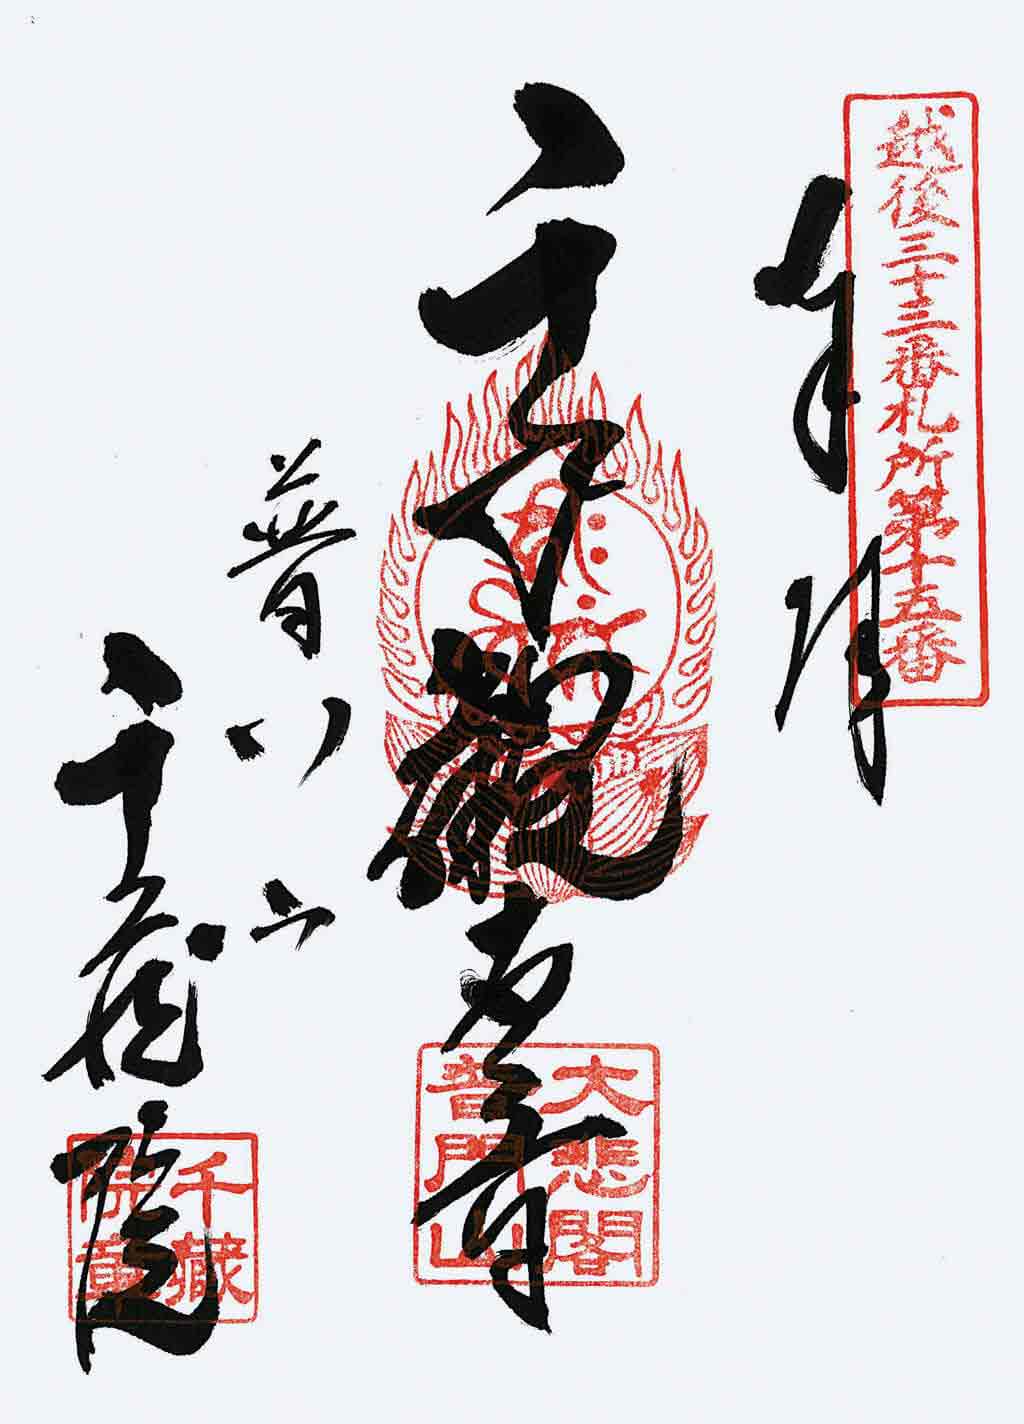 越後三十三番札所第十五番
奉拝
千手観世音
大悲閣
普門山
普門山
千蔵院
千蔵
院章